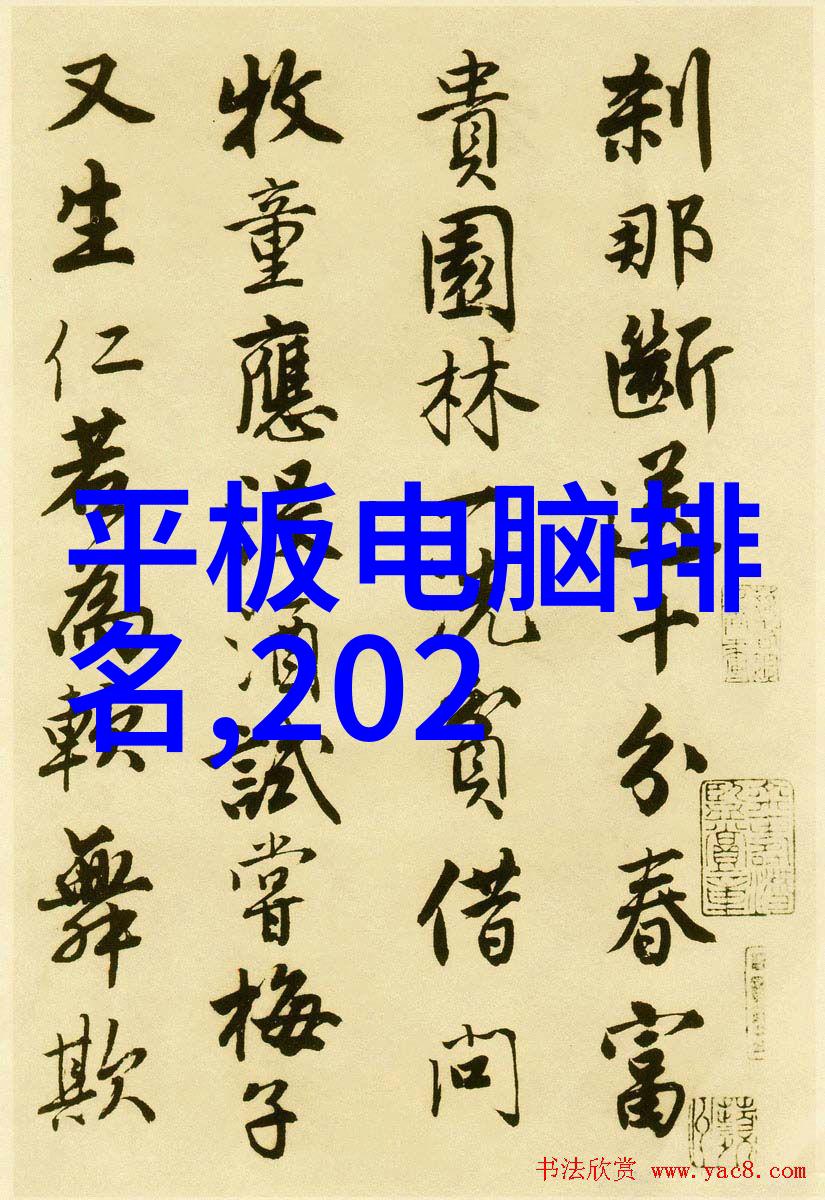 刹那斷送十分春富
貴園林一洗貧借問
牧童應沒酒試嘗梅子
又生仁若為軟舞欺
平板电脑排
名,202
书法欣赏 www.yac8.com